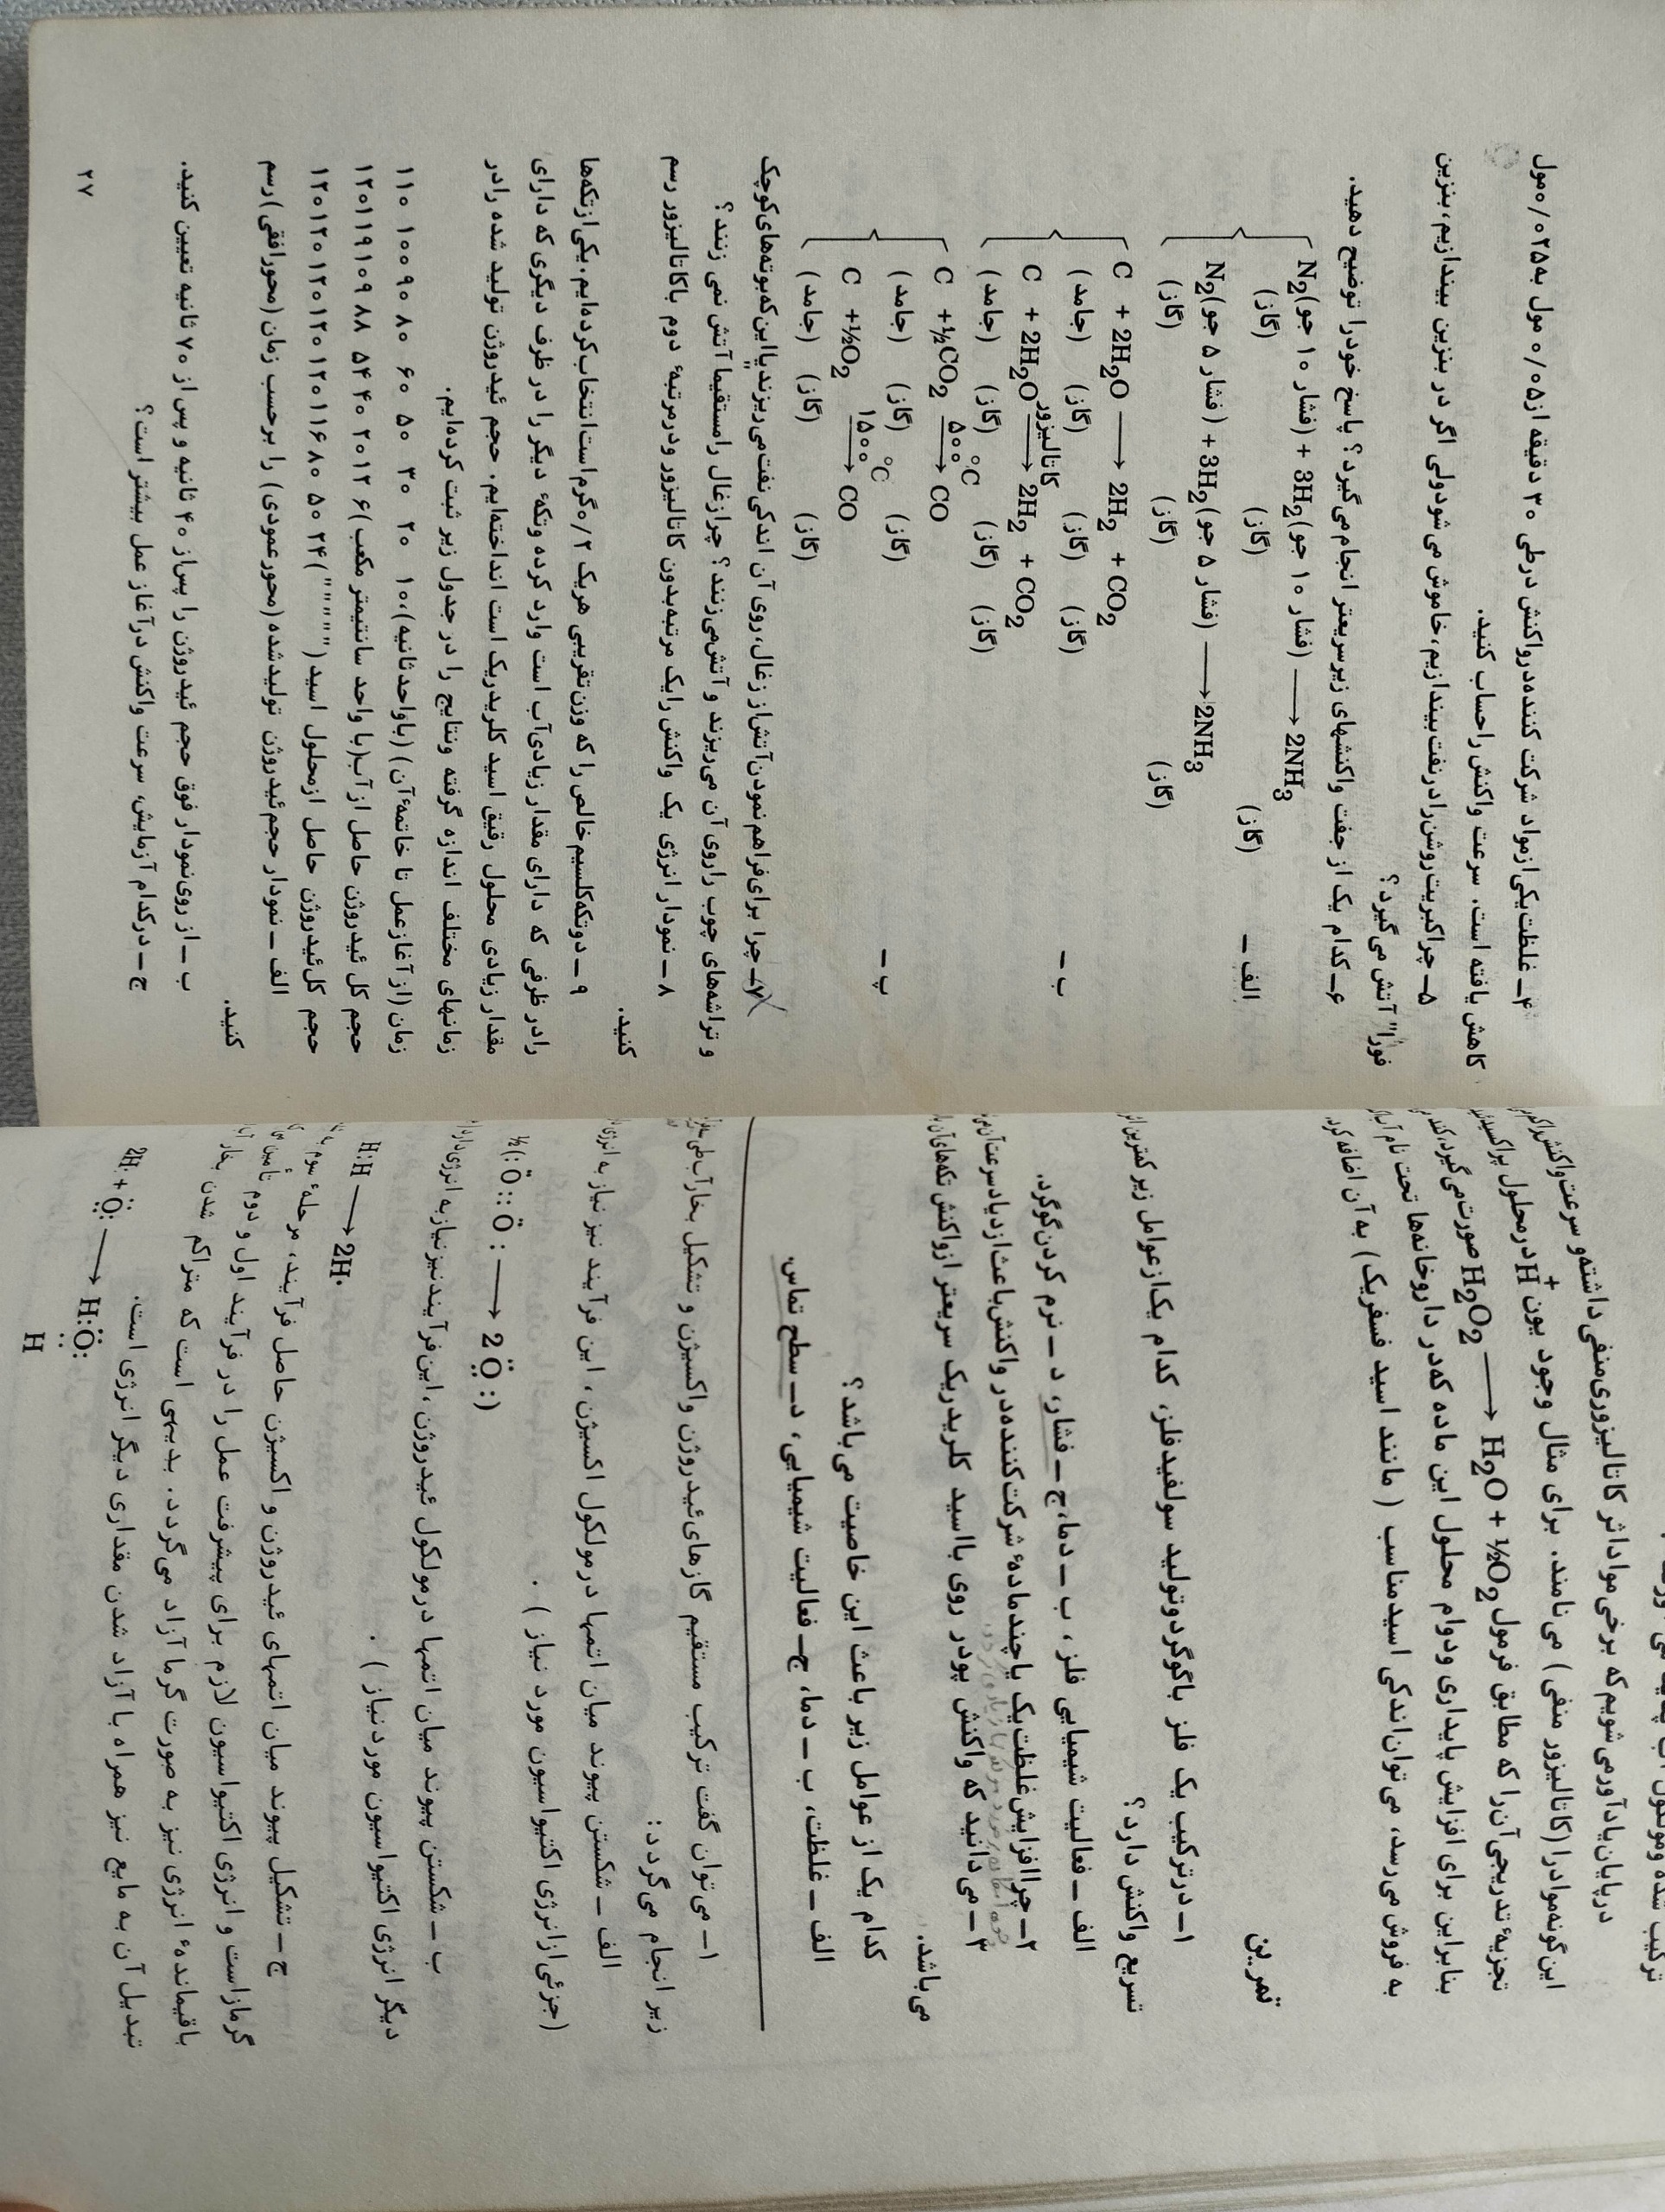 ترکیب شده و مولکول آب پدید می‌آورند.
در پایان یادآور می‌شویم که برخی مواد اثر کاتالیزوری منفی داشته و سرعت واکنش را کم
این گونه مواد را (کاتالیزور منفی) می‌نامند. برای مثال وجود یون H+ در محلول پراکسید
تجزیهٔ تدریجی آن را که مطابق فرمول H2O2 ⟶ H2O + ½O2 صورت می‌گیرد، کند
بنابراین برای افزایش پایداری و دوام محلول این ماده که در داروخانه‌ها تحت نام آب
به فروش می‌رسد، می‌توان اندکی اسید مناسب (مانند اسید فسفریک) به آن اضافه کرد.
تمرین
۱ـ در ترکیب یک فلز با گوگرد و تولید سولفید فلز، کدام یک از عوامل زیر کمترین اثر
تسریع واکنش دارد؟
الف ـ فعالیت شیمیایی فلز، ب ـ دما، ج ـ فشار، د ـ نرم کردن گوگرد.
۲ـ چرا افزایش غلظت یک یا چند مادهٔ شرکت کننده در واکنش باعث ازدیاد سرعت آن
۳ـ می‌دانید که واکنش پودر روی با اسید کلریدریک سریعتر از واکنش تکه‌های آن با
می‌باشد.
کدام یک از عوامل زیر باعث این خاصیت می‌باشد؟
الف ـ غلظت، ب ـ دما، ج ـ فعالیت شیمیایی، د ـ سطح تماس.
۱ـ می‌توان گفت ترکیب مستقیم گازهای ئیدروژن واکسیژن و تشکیل بخار آب طی
زیر انجام می‌گردد:
الف ـ شکستن پیوند میان اتمها در مولکول اکسیژن، این فرآیند نیز نیاز به انرژی
(جزئی از انرژی اکتیواسیون مورد نیاز).
½(:Ö::Ö: ⟶ 2 Ö:)
ب ـ شکستن پیوند میان اتمها در مولکول ئیدروژن، این فرآیند نیز نیاز به انرژی دارد
دیگر انرژی اکتیواسیون مورد نیاز).
H:H ⟶ 2H·
ج ـ تشکیل پیوند میان اتمهای ئیدروژن و اکسیژن حاصل فرآیند، مرحلهٔ سوم
گرمازاست و انرژی اکتیواسیون لازم برای پیشرفت عمل را در فرآیند اول و دوم تأمین
باقیماندهٔ انرژی نیز به صورت گرما آزاد می‌گردد. بدیهی است که متراکم شدن بخار
تبدیل آن به مایع نیز همراه با آزاد شدن مقداری دیگر انرژی است.
2H· + Ö: ⟶ H:Ö:
H
۴ـ غلظت یکی از مواد شرکت کننده در واکنش در طی ۳۰ دقیقه از ۰/۰۵ مول به ۰/۰۲۵ مول
کاهش یافته است. سرعت واکنش را حساب کنید.
۵ـ چرا کبریت روشن را در نفت بیندازیم، خاموش می‌شود ولی اگر در بنزین بیندازیم، بنزین
فوراً آتش می‌گیرد؟
۶ـ کدام یک از جفت واکنشهای زیر سریعتر انجام می‌گیرد؟ پاسخ خود را توضیح دهید.
الف ـ
N2(فشار ۱۰ جو) + 3H2(فشار ۱۰ جو) ⟶ 2NH3
(گاز) (گاز) (گاز)
N2(فشار ۵ جو) + 3H2(فشار ۵ جو) ⟶ 2NH3
(گاز) (گاز) (گاز)
ب ـ
C + 2H2O ⟶ 2H2 + CO2
(جامد) (گاز) (گاز) (گاز)
C + 2H2O ⟶ کاتالیزور 2H2 + CO2
(جامد) (گاز) (گاز) (گاز)
پ ـ
C + ½CO2 ⟶ ۵۰۰ °C CO
(جامد) (گاز) (گاز)
C + ½O2 ⟶ ۱۵۰۰ °C CO
(جامد) (گاز) (گاز)
۷ـ چرا برای فراهم نمودن آتش از زغال، روی آن اندکی نفت می‌ریزند یا این که بوته‌های کوچک
و تراشه‌های چوب را روی آن می‌ریزند و آتش می‌زنند؟ چرا زغال را مستقیماً آتش نمی زنند؟
۸ ـ نمودار انرژی یک واکنش را یک مرتبه بدون کاتالیزور و در مرتبهٔ دوم با کاتالیزور رسم
کنید.
۹ ـ دو تکه کلسیم خالص را که وزن تقریبی هر یک ۰/۲ گرم است انتخاب کرده‌ایم. یکی از تکه‌ها
را در ظرفی که دارای مقدار زیادی آب است وارد کرده و تکهٔ دیگر را در ظرف دیگری که دارای
مقدار زیادی محلول رقیق اسید کلریدریک است انداخته‌ایم. حجم ئیدروژن تولید شده را در
زمانهای مختلف اندازه گرفته و نتایج را در جدول زیر ثبت کرده‌ایم.
زمان (از آغاز عمل تا خاتمهٔ آن) (با واحد ثانیه)، ۱۰ ۲۰ ۳۰ ۵۰ ۶۰ ۸۰ ۹۰ ۱۰۰ ۱۱۰
حجم کل ئیدروژن حاصل از آب (با واحد سانتیمتر مکعب) ۶ ۱۲ ۲۰ ۴۰ ۵۴ ۸۸ ۱۰۹ ۱۱۹ ۱۲۰
حجم کل ئیدروژن حاصل از محلول اسید (" " " ") ۲۴ ۵۰ ۸۰ ۱۱۶ ۱۲۰ ۱۲۰ ۱۲۰ ۱۲۰ ۱۲۰
الف ـ نمودار حجم ئیدروژن تولید شده (محور عمودی) را برحسب زمان (محور افقی) رسم
کنید.
ب ـ از روی نمودار فوق حجم ئیدروژن را پس از ۴۰ ثانیه و پس از ۷۰ ثانیه تعیین کنید.
ج ـ در کدام آزمایش، سرعت واکنش در آغاز عمل بیشتر است؟
۲۷